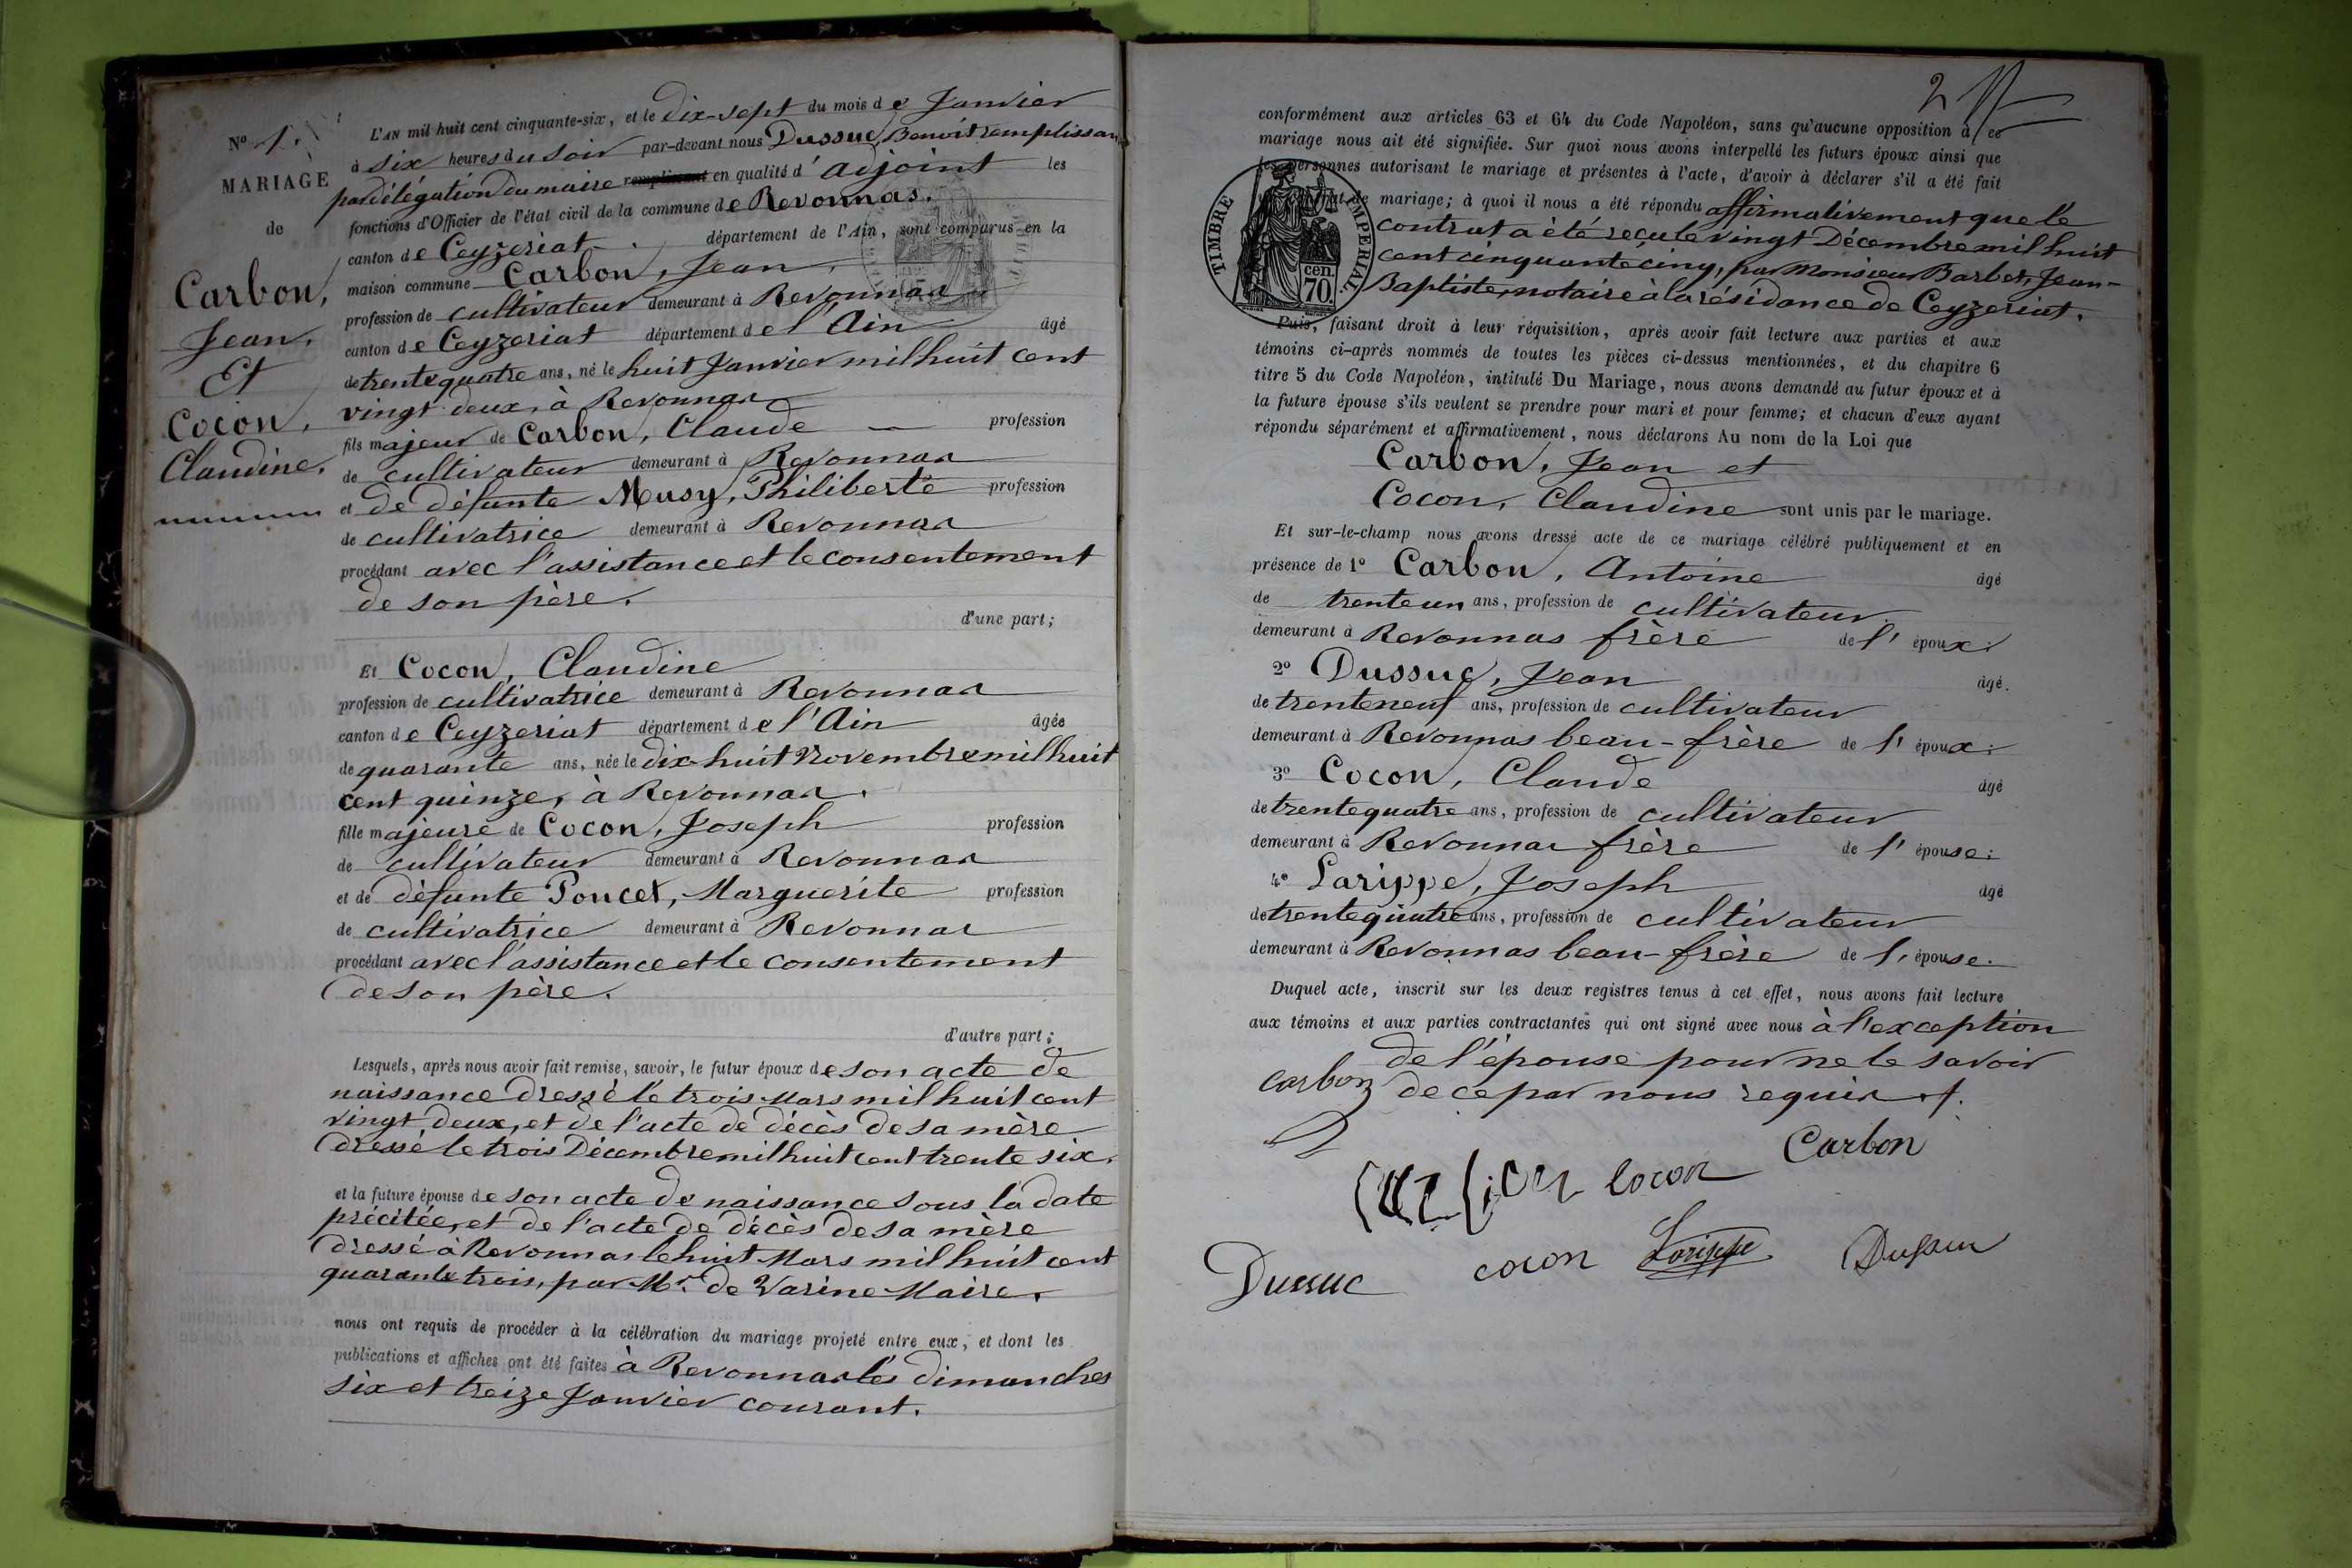 No 1.
MARIAGE
de
Carbon,
Jean.
Et
Cocon,
Claudine.
L'AN mil huit cent cinquante-six, et le dix-sept du mois de Janvier
à six heures du soir par-devant nous Dussuc, Benoit remplissant
par délégation du maire remplissant en qualité d'adjoint les
fonctions d'Officier de l'état civil de la commune de Revonnas.
canton de Ceyzeriat. département de l'Ain, sont comparus en la
maison commune Carbon, Jean,
profession de cultivateur demeurant à Revonnas
canton de Ceyzeriat département de l'Ain âgé
de trente quatre ans, né le huit Janvier mil huit cent
vingt deux, à Revonnas
fils majeur de Carbon, Claude profession
de cultivateur demeurant à Revonnas
et de défunte Musy, Philiberte profession
de cultivatrice demeurant à Revonnas
procédant avec l'assistance et le consentement
de son père.
d'une part;
Et Cocon, Claudine
profession de cultivatrice demeurant à Revonnas
canton de Ceyzeriat département de l'Ain âgée
de quarante ans, née le dix-huit Novembre mil huit
cent quinze, à Revonnas.
fille majeure de Cocon, Joseph profession
de cultivateur demeurant à Revonnas
et de défunte Poncet, Marguerite profession
de cultivatrice demeurant à Revonnas
procédant avec l'assistance et le consentement
de son père.
d'autre part;
Lesquels, après nous avoir fait remise, savoir, le futur époux de son acte de
naissance dressé le trois Mars mil huit cent
vingt deux, et de l'acte de décès de sa mère
dressé le trois Décembre mil huit cent trente six.
et la future épouse de son acte de naissance sous la date
précitée, et de l'acte de décès de sa mère
dressé à Revonnas le huit Mars mil huit cent
quarante trois, par Mr. de Varine Maire.
nous ont requis de procéder à la célébration du mariage projeté entre eux, et dont les
publications et affiches ont été faites à Revonnas les dimanches
six et treize Janvier courant.
2
conformément aux articles 63 et 64 du Code Napoléon, sans qu'aucune opposition à ce
mariage nous ait été signifiée. Sur quoi nous avons interpellé les futurs époux ainsi que
les personnes autorisant le mariage et présentes à l'acte, d'avoir à déclarer s'il a été fait
contrat de mariage; à quoi il nous a été répondu affirmativement que le
contrat a été reçu le vingt Décembre mil huit
cent cinquante cinq, par Monsieur Barbet, Jean-
Baptiste, notaire à la résidance de Ceyzeriat.
TIMBRE IMPERIAL.
cen.
70
Puis, faisant droit à leur réquisition, après avoir fait lecture aux parties et aux
témoins ci-après nommés de toutes les pièces ci-dessus mentionnées, et du chapitre 6
titre 5 du Code Napoléon, intitulé Du Mariage, nous avons demandé au futur époux et à
la future épouse s'ils veulent se prendre pour mari et pour femme; et chacun d'eux ayant
répondu séparément et affirmativement, nous déclarons Au nom de la Loi que
Carbon, Jean et
Cocon, Claudine sont unis par le mariage.
Et sur-le-champ nous avons dressé acte de ce mariage célébré publiquement et en
présence de 1o Carbon, Antoine âgé
de trente un ans, profession de cultivateur
demeurant à Revonnas frère de l'époux:
2o Dussuc, Jean âgé.
de trente neuf ans, profession de cultivateur
demeurant à Revonnas beau-frère de l'époux:
3o Cocon, Claude âgé
de trente quatre ans, profession de cultivateur
demeurant à Revonnas frère de l'épouse:
4o Larippe, Joseph âgé
de trente quatre ans, profession de cultivateur
demeurant à Revonnas beau-frère de l'épouse.
Duquel acte, inscrit sur les deux registres tenus à cet effet, nous avons fait lecture
aux témoins et aux parties contractantes qui ont signé avec nous à l'exception
de l'épouse pour ne le savoir
de ce par nous requis.
Carbon
Carbon
cocon
Dussuc
cocon
Larippe
Dussuc